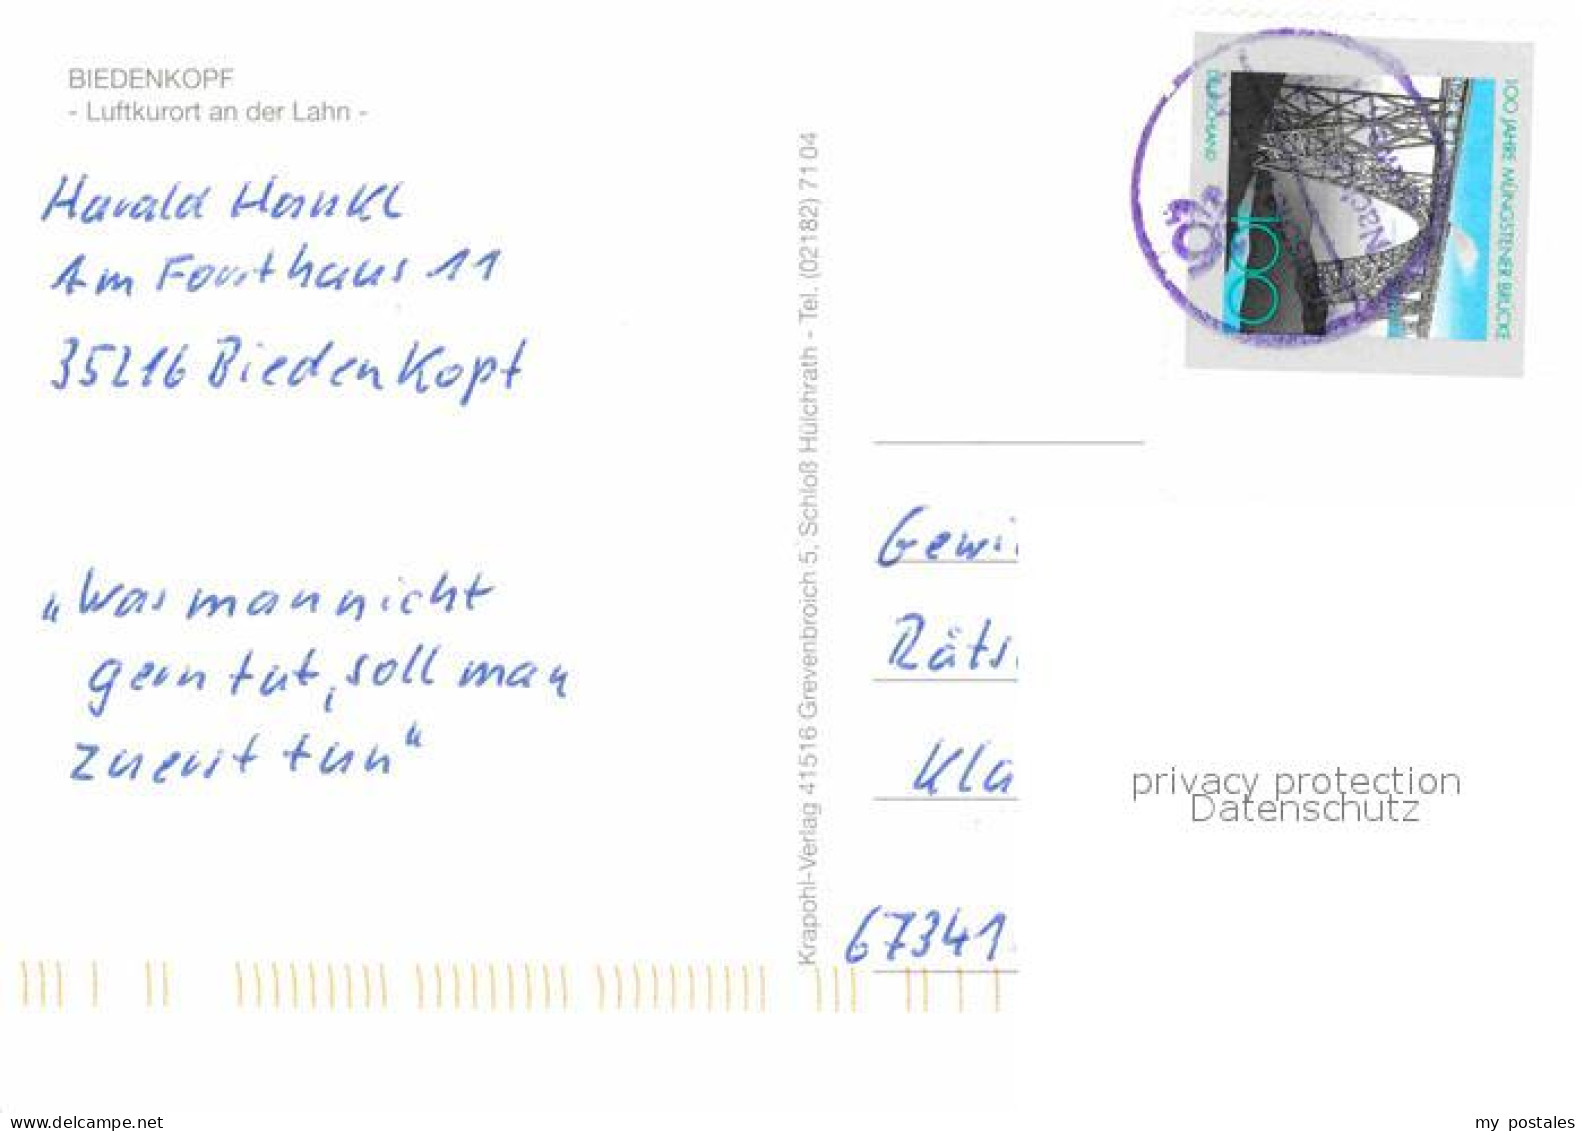 BIEDENKOPF
- Luftkurort an der Lahn -
Harald Hankl
Am Forsthaus 11
35216 Biedenkopf
„Was man nicht
gern tut, soll man
zuerst tun“
Krapohl-Verlag 41516 Grevenbroich 5, Schloß Hülchrath - Tel. (02182) 71 04
100 JAHRE MÜNGSTENER BRÜCKE
DEUTSCHLAND
100
Gewi
Räts
Kla
67341
privacy protection
Datenschutz
www.delcampe.net
my postales